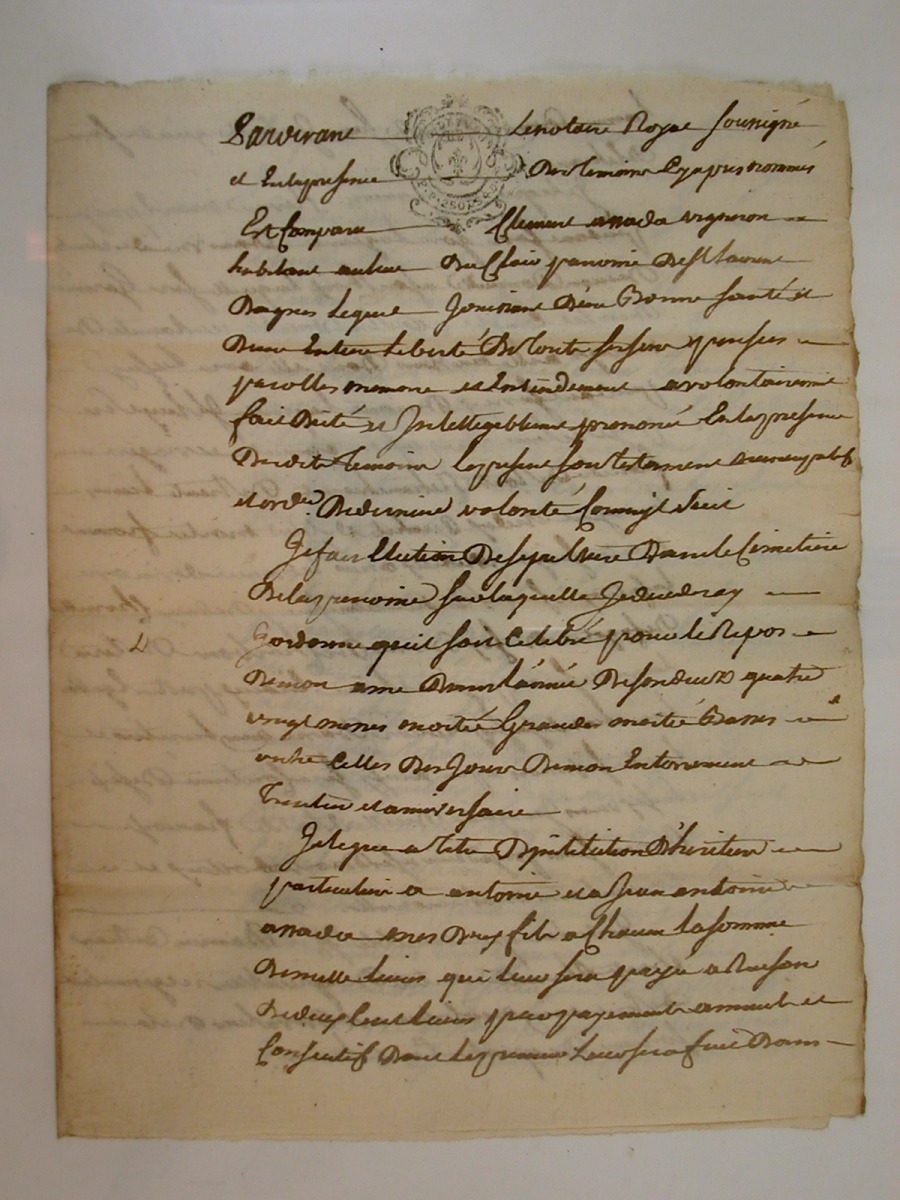 Pardevant Le notaire Royal soussigné
et En la presence Des temoins Cy apres nommés
Est Comparu Clement vigneron
habitant au lieu Du paroisse De St Laurent
Dagnes Lequel Jouissant D'une Bonne santé et
D'une Entiere Liberté De touts ses sens pensées
parolles memoire et Entendement a volontairemt
fait Dicté et Intelligiblement prononcé En la presence
Desdits temoins Le present son testament
et ordce De derniere volonté Comm'il suit
Je fais Election De sepulture Dans le Cimetiere
De la paroisse sur laquelle Je decederay
J'ordonne qu'il soit Celebré pour le Repos
De mon ame Dans l'année De son deces quatre
vingt messes moitié Grandes moitié Basses
outre Celles Des Jours De mon Enterrement
Trentin et anniversaire
Je legue a titre D'institution D'heritier
particulier a antoine et a Jean antoine
mes Deux fils a Chacun La somme
De mille Livres qui leur sera payé a Raison
De deux Cent Livres par payements annuels et
Consecutifs Dont Le premier Leur sera fait Dans